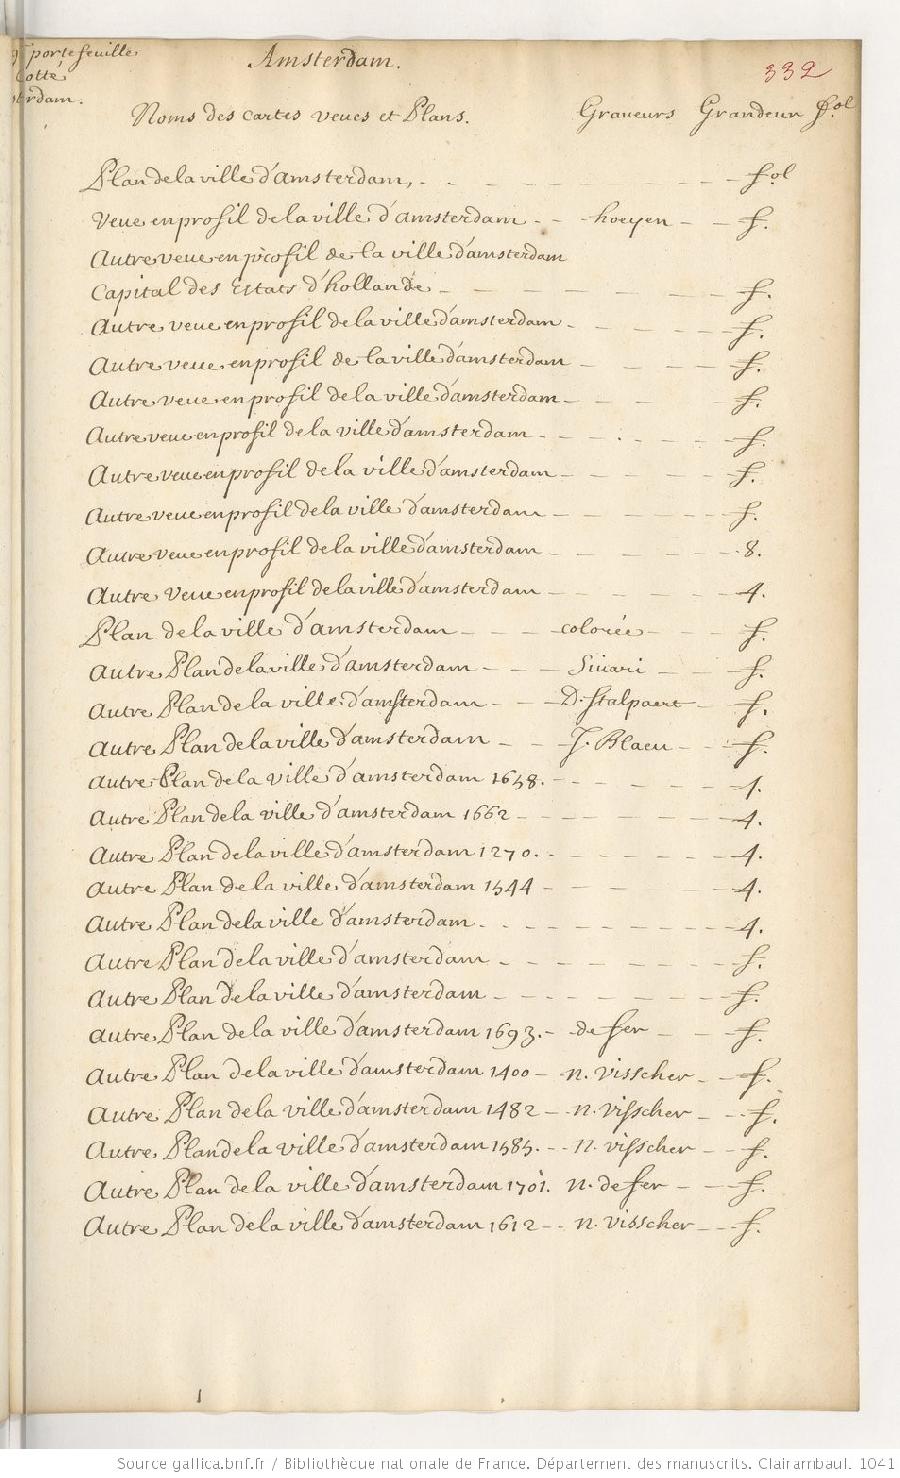 portefeuille
Cotté
Amsterdam.
332
Noms des cartes veues et Plans. Graveurs Grandeur fol
Plan de la ville d'amsterdam, fol
Veue en profil de la ville d'amsterdam hoeyen f.
Autre veue en profil de la ville d'amsterdam
Capital des Estats d'hollande f.
Autre veue en profil de la ville d'amsterdam f.
Autre veue en profil de la ville d'amsterdam f.
Autre veue en profil de la ville d'amsterdam f.
Autre veue en profil de la ville d'amsterdam f.
Autre veue en profil de la ville d'amsterdam f.
Autre veue en profil de la ville d'amsterdam f.
Autre veue en profil de la ville d'amsterdam 8.
Autre Veue en profil de la ville d'amsterdam 4.
Plan de la ville d'amsterdam colorée f.
Autre Plan de la ville d'amsterdam f.
Autre Plan de la ville d'amsterdam D. Stalpaert f.
Autre Plan de la ville d'amsterdam J. Blaeu f.
Autre Plan de la Ville d'amsterdam 1658. 4.
Autre Plan de la ville d'amsterdam 1662 4.
Autre Plan de la ville d'amsterdam 1270. 4.
Autre Plan de la ville d'amsterdam 1544 4.
Autre Plan de la ville d'amsterdam 4.
Autre Plan de la ville d'amsterdam f.
Autre Plan de la ville d'amsterdam f.
Autre Plan de la ville d'amsterdam 1693. de fer f.
Autre Plan de la ville d'amsterdam 1400 n. visscher f.
Autre Plan de la ville d'amsterdam 1482 n. visscher f.
Autre Plan de la ville d'amsterdam 1585. n. visscher f.
Autre Plan de la ville d'amsterdam 1701. n. de fer f.
Autre Plan de la ville d'amsterdam 1612 n. visscher f.
Source gallica.bnf.fr / Bibliothèque nationale de France. Département des manuscrits. Clairambault 1041